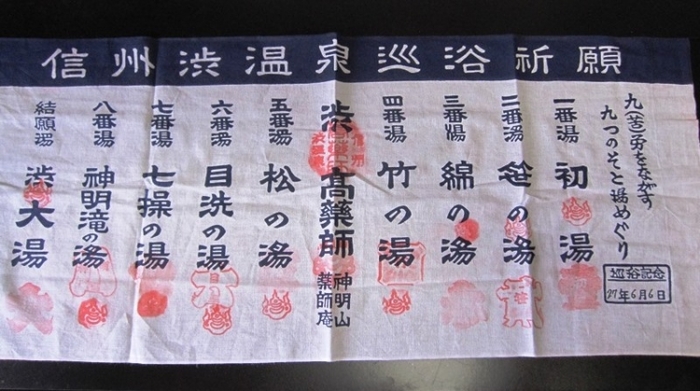 信州渋温泉巡浴祈願
九(苦)労をながす
九つのそと湯めぐり
巡浴記念
27年6月6日
一番湯 初湯
二番湯 笹の湯
三番湯 綿の湯
四番湯 竹の湯
渋高薬師
神明山
薬師庵
五番湯 松の湯
六番湯 目洗の湯
七番湯 七操の湯
八番湯 神明滝の湯
結願湯 渋大湯